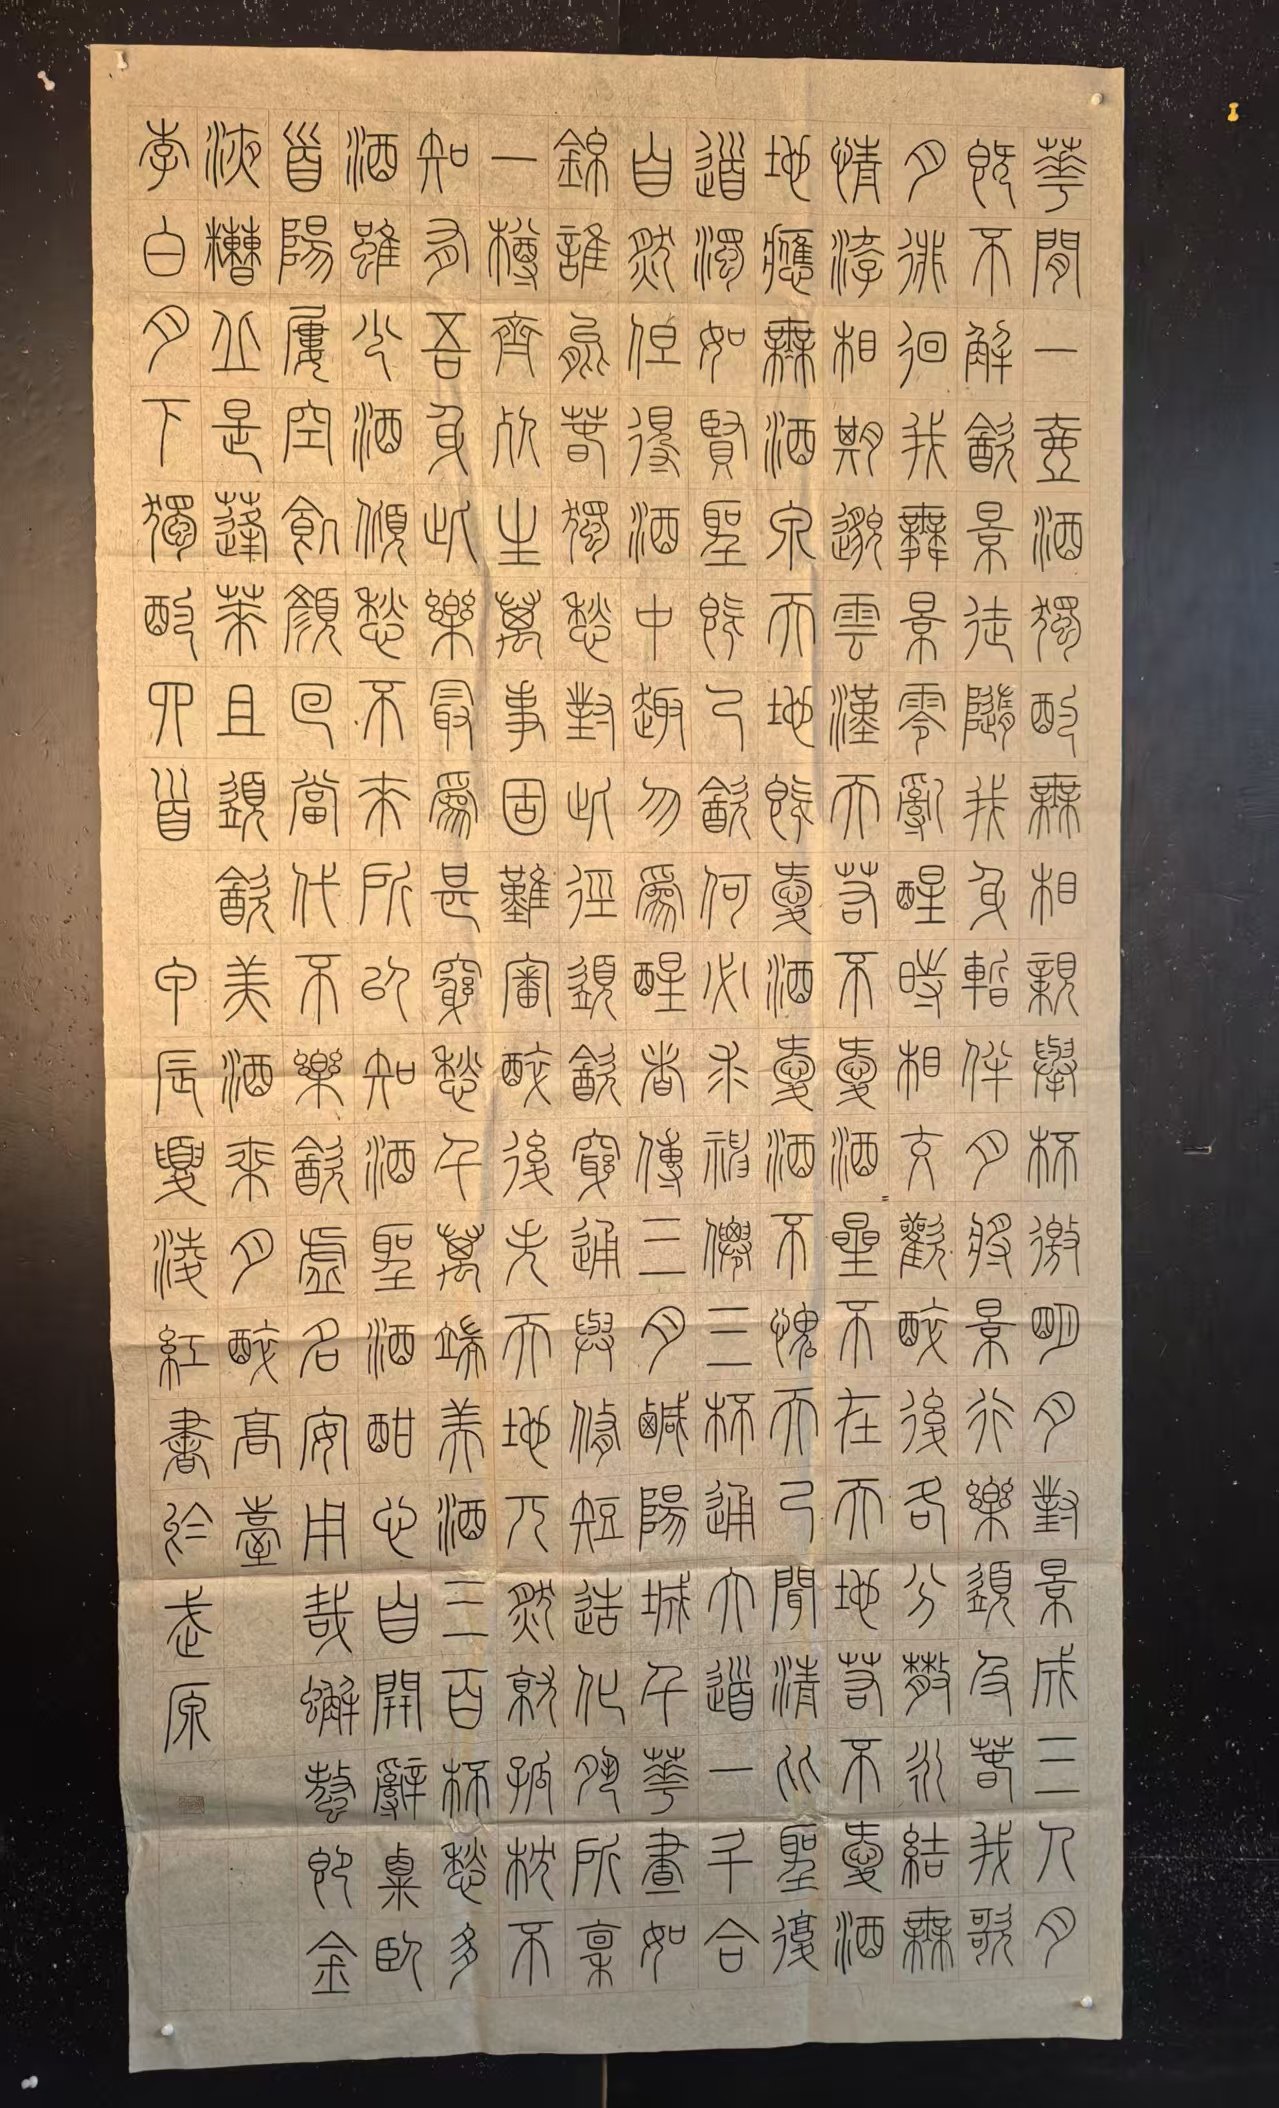 華間一壺酒獨酌無相親舉杯邀明月對景成三人月
既不解飲景徒隨我身暫伴月將景行樂須及春我歌
月徘徊我舞景零亂醒時相交歡醉後各分散永結無
情游相期邈雲漢天若不愛酒=星不在天地若不愛酒
地應無酒泉天地既愛酒愛酒不愧天已聞清比聖復
道濁如賢聖既已飲何必求神僊三杯通大道一斗合
自然但得酒中趣勿為醒者傳三月鹹陽城千華晝如
錦誰能春獨愁對此徑須飲窮通與修短造化夙所稟
一樽齊死生萬事固難審醉後失天地兀然就孤枕不
知有吾身此樂最為甚窮愁千萬端美酒三百杯愁多
酒雖少酒傾愁不來所以知酒聖酒酣心自開辭粟臥
首陽屢空飢顏回當代不樂飲虛名安用哉蟹螯即金
液糟丘是蓬萊且須飲美酒乘月醉高臺
李白月下獨酌四首 甲辰夏凌紅書於武原